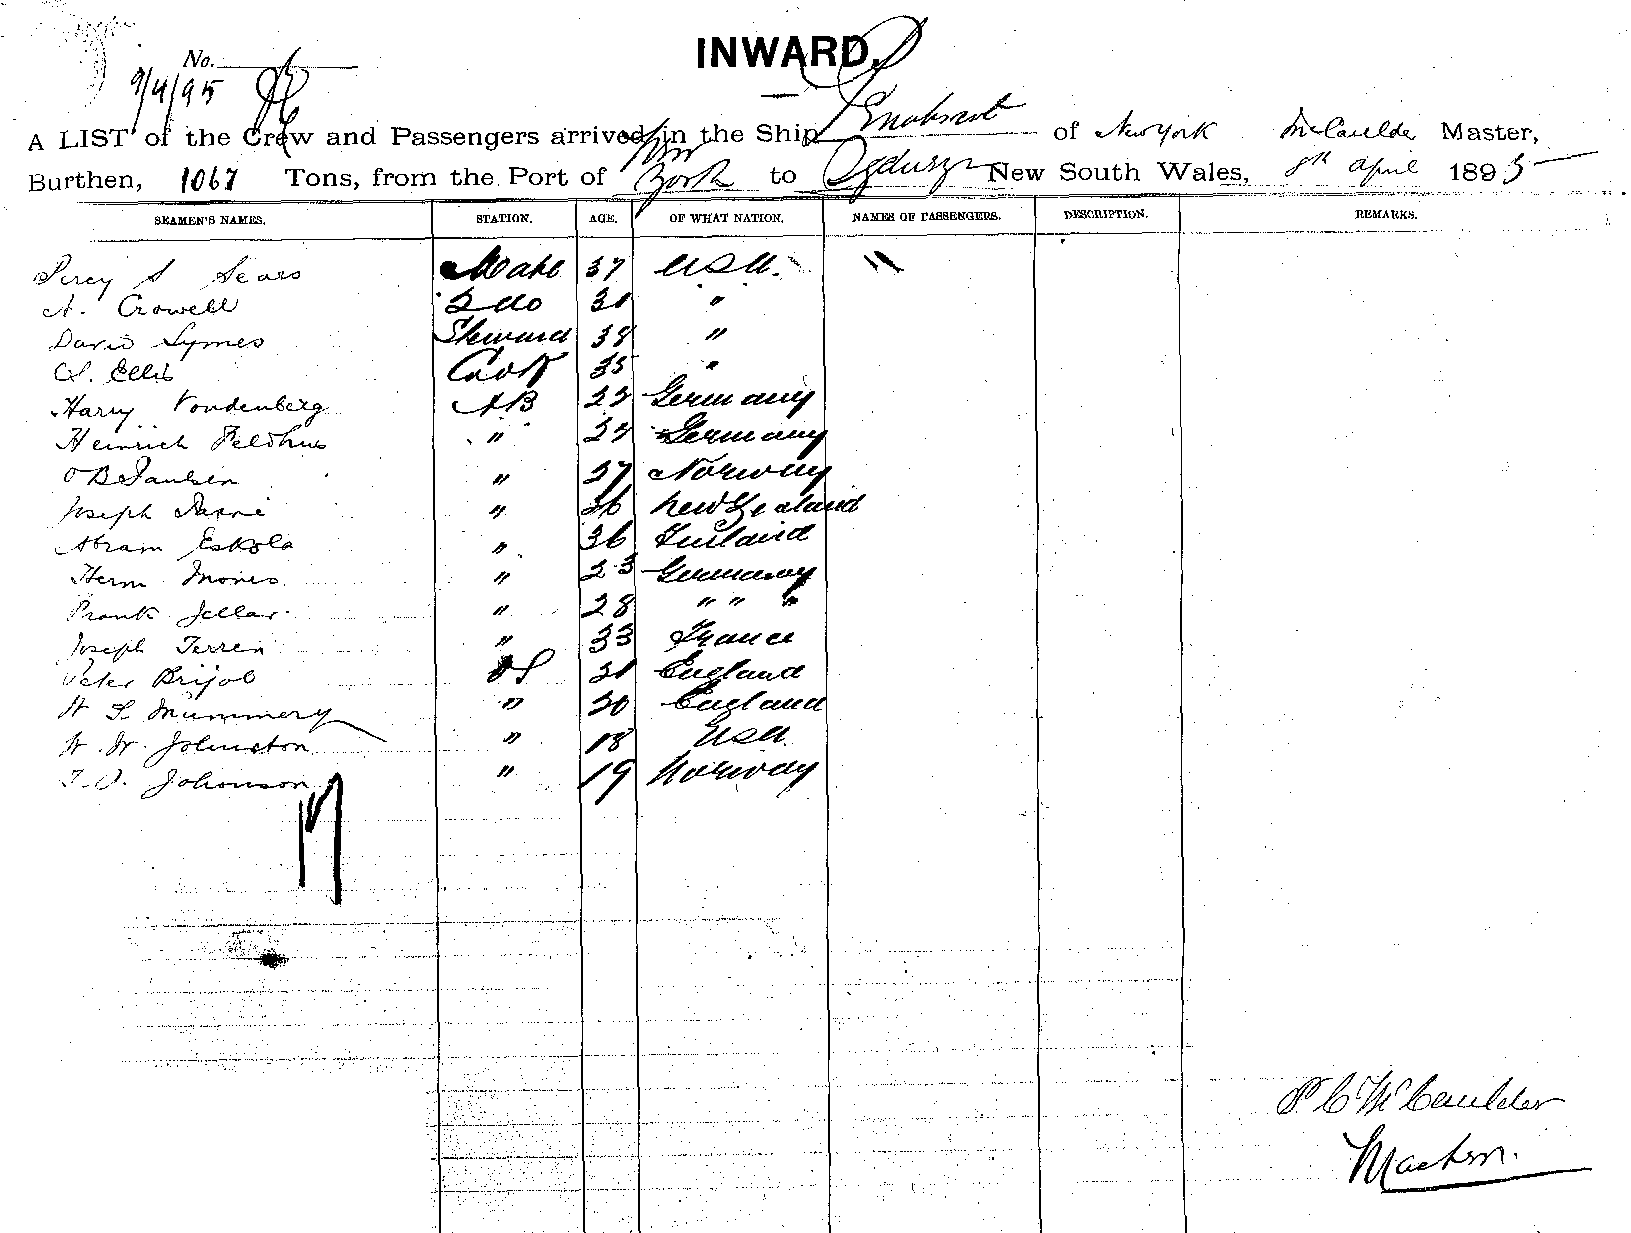 No.
9/4/95
INWARD.
A LIST of the Crew and Passengers arrived in the Ship of New York McCaulder Master,
Burthen, 1067 Tons, from the Port of York to Sydney New South Wales, 8th April 1895
SEAMEN'S NAMES. STATION. AGE. OF WHAT NATION. NAMES OF PASSENGERS. DESCRIPTION. REMARKS.
Percy S Sears Mate 37 USA. "
A. Crowell 2 do "
David Symes Steward 38 "
Ellis Cook 35 "
Harry Vondenberg AB Germany
Heinrich Feldhus " Germany
" 37 Norway
Joseph " 36 New Zealand
Abram Eskola " 36 Finland
Herm " 23 Germany
Frank Jellar " 28 " " "
Joseph Terren " 33 France
Peter OS England
Mummery " 20 England
W. Johnston " 18 USA.
Johnson " 19 Norway
P C McCaulder
Master.